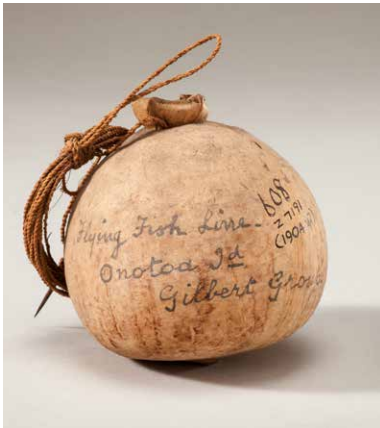 Flying Fish Line.
Onotoa Id
Gilbert Group
608
Z 7191